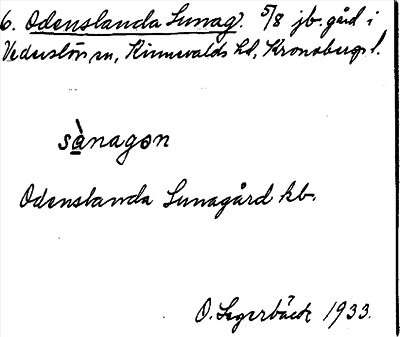 6. Odenslanda Sunag. 5/8 jb. gård i
Vederslöv sn, Kinnevalds hd, Kronobergs l.
sànagɔn
Odenslanda Sunagård kb.
O. Segerbäck 1933.